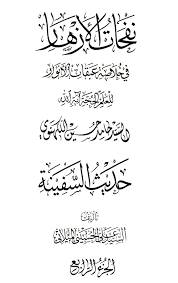 نفحات الأزهار
في خلاصة عبقات الأنوار
للعلم الحجة آية الله
السيد حامد حسين اللكهنوي
حديث السفينة
تأليف
السيد علي الحسيني الميلاني
الجزء الرابع